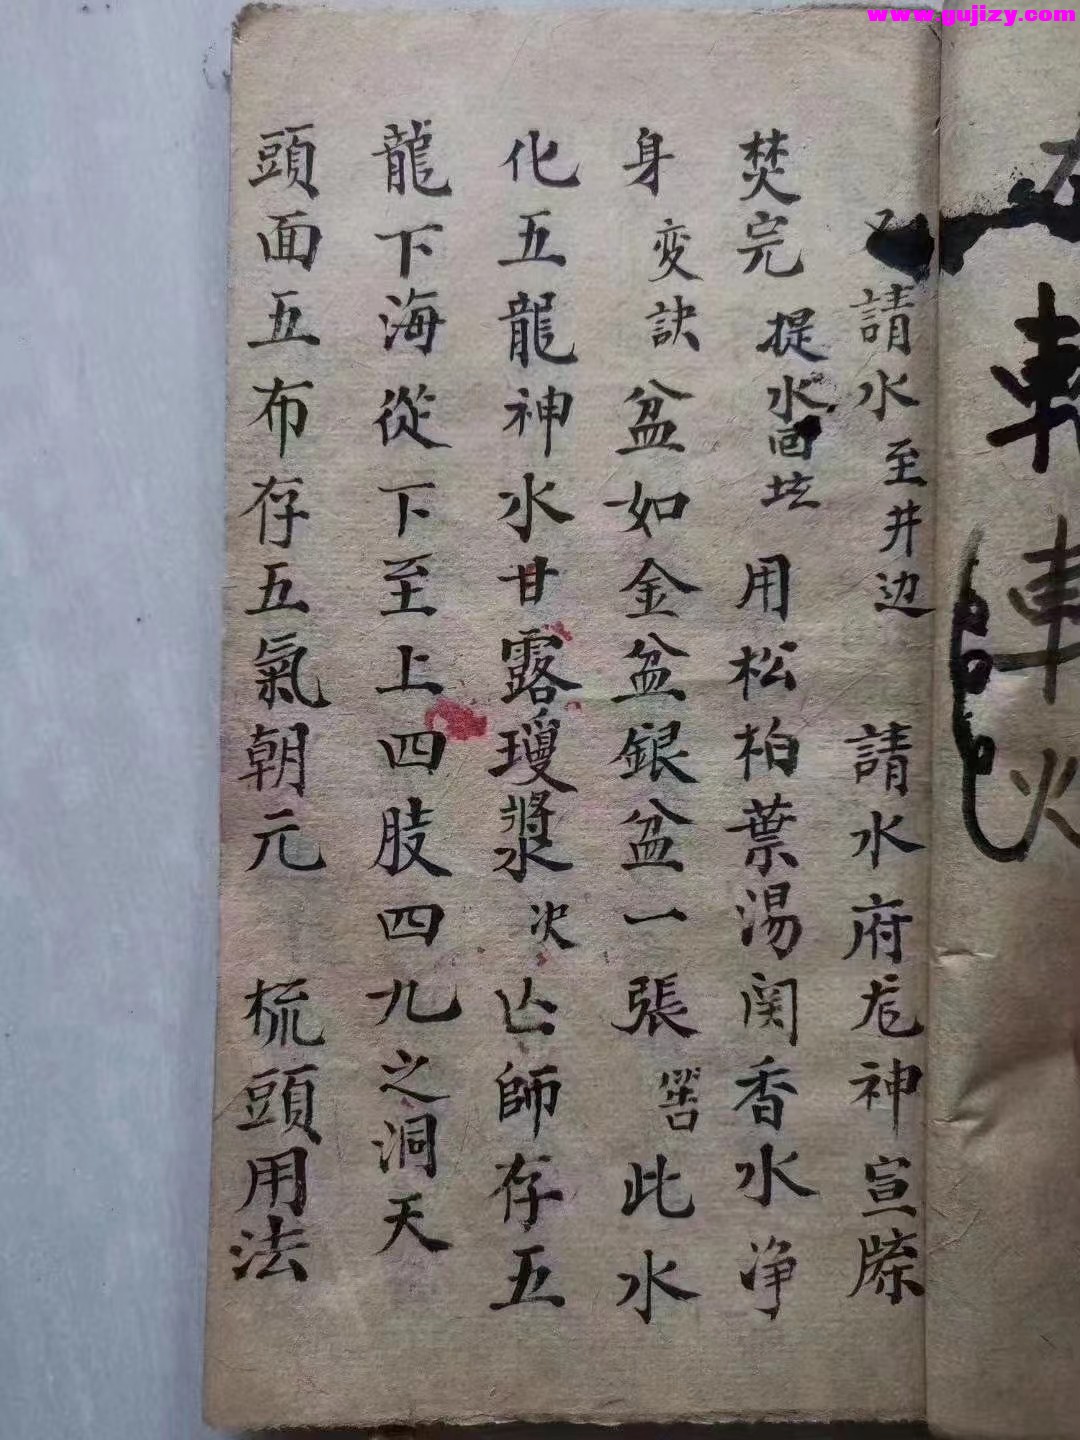 www.gujizy.com
又請水至井边 請水府尨神宣牒
焚完提水回坛 用松柏葉湯関香水净
身变訣盆如金盆銀盆一張 此水
化五龍神水甘露瓊漿次亡師存五
龍下海從下至上四肢四九之洞天
頭面五布存五氣朝元 梳頭用法